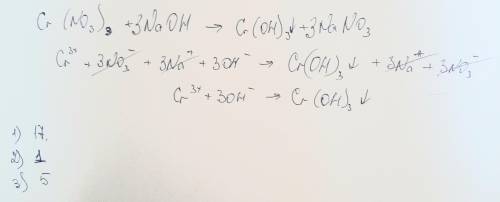 Cr(NO₃)₃ + 3NaOH → Cr(OH)₃↓ + 3NaNO₃
Cr³⁺ + 3NO₃⁻ + 3Na⁺ + 3OH⁻ → Cr(OH)₃↓ + 3Na⁺ + 3NO₃⁻
Cr³⁺ + 3OH⁻ → Cr(OH)₃↓
1) 17.
2) 1
3) 5